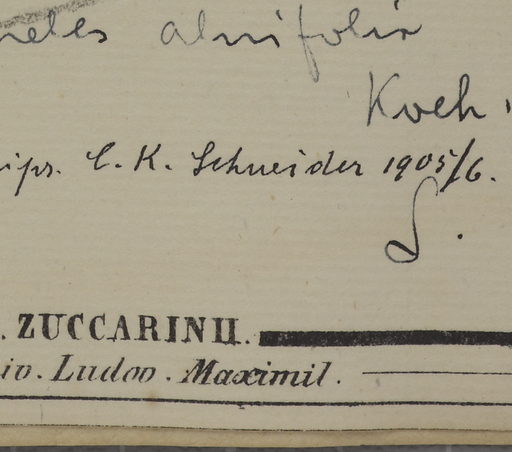 meles alnifolia
Koch.
rips. C. K. Schneider 1905/6.
S.
. ZUCCARINII.
iv. Ludov. Maximil.